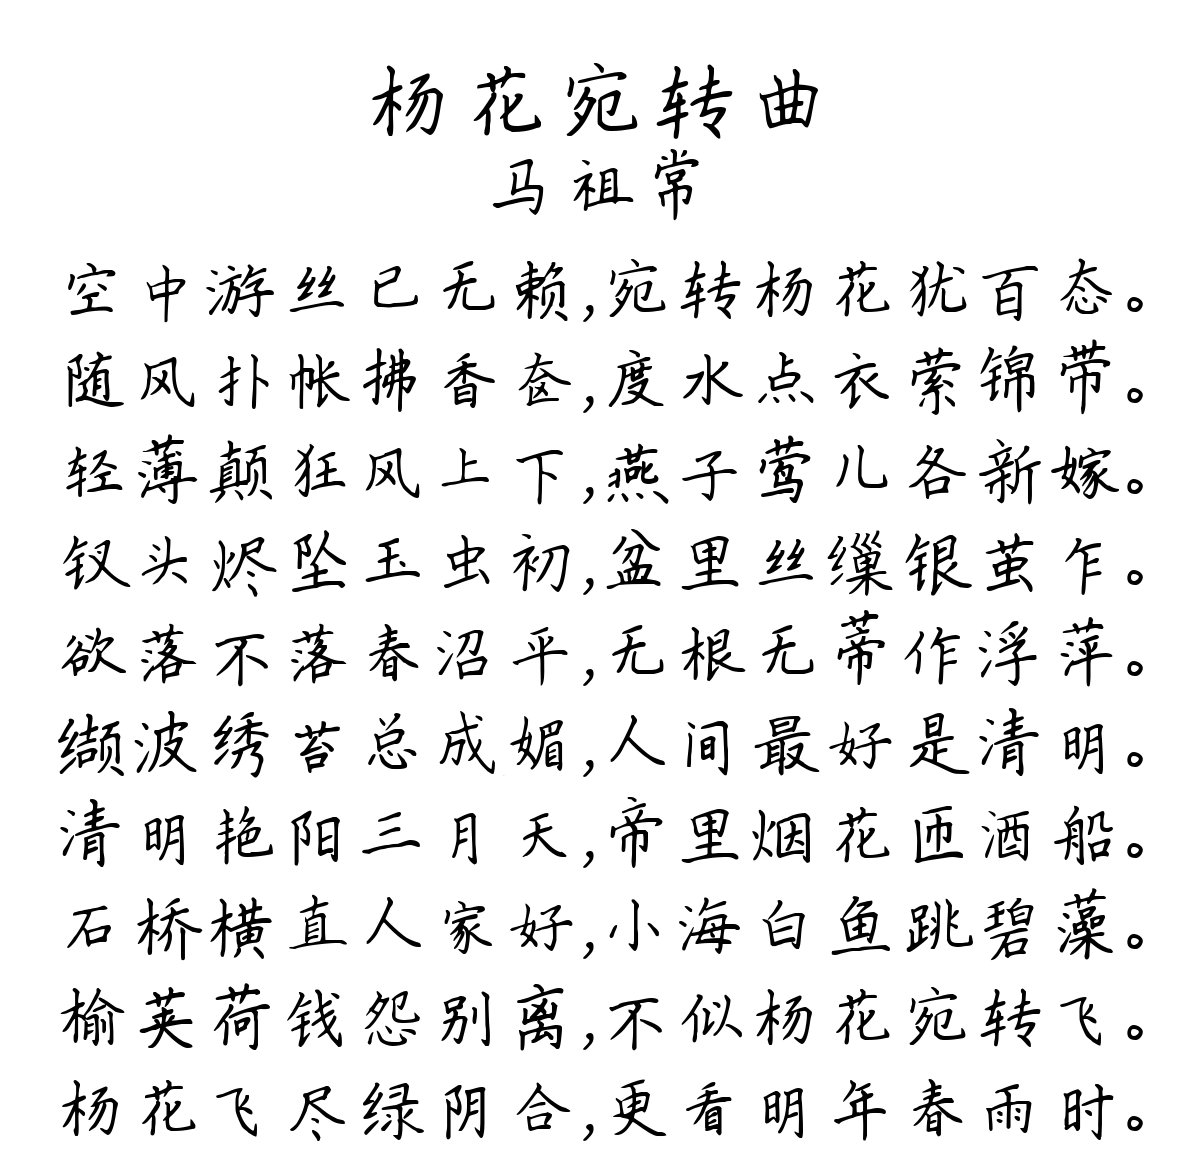 杨花宛转曲
马祖常
空中游丝已无赖,宛转杨花犹百态。
随风扑帐拂香奁,度水点衣萦锦带。
轻薄颠狂风上下,燕子莺儿各新嫁。
钗头烬坠玉虫初,盆里丝缫银茧乍。
欲落不落春沼平,无根无蒂作浮萍。
缬波绣苔总成媚,人间最好是清明。
清明艳阳三月天,帝里烟花匝酒船。
石桥横直人家好,小海白鱼跳碧藻。
榆荚荷钱怨别离,不似杨花宛转飞。
杨花飞尽绿阴合,更看明年春雨时。